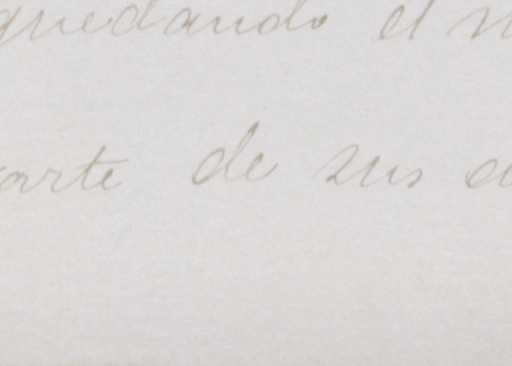 quedando el
arte de sus